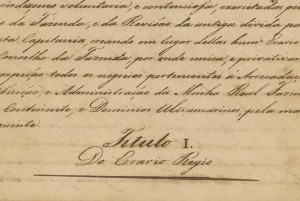 indissima voluntaria, e contenciosa, executada p
s da Fazenda, e da Revisão da antiga divida p
ta Capitania mando em lugar dellas hum Erario
Conselho da Fazenda, por onde unica, e privativam
specção todos os negocios pertencentes á Arrecadaç
buição, e Administração da Minha Real Fazen
Continente, e Dominios Ultramarinos, pela ma
guinte.
Titulo I.
Do Erario Regio